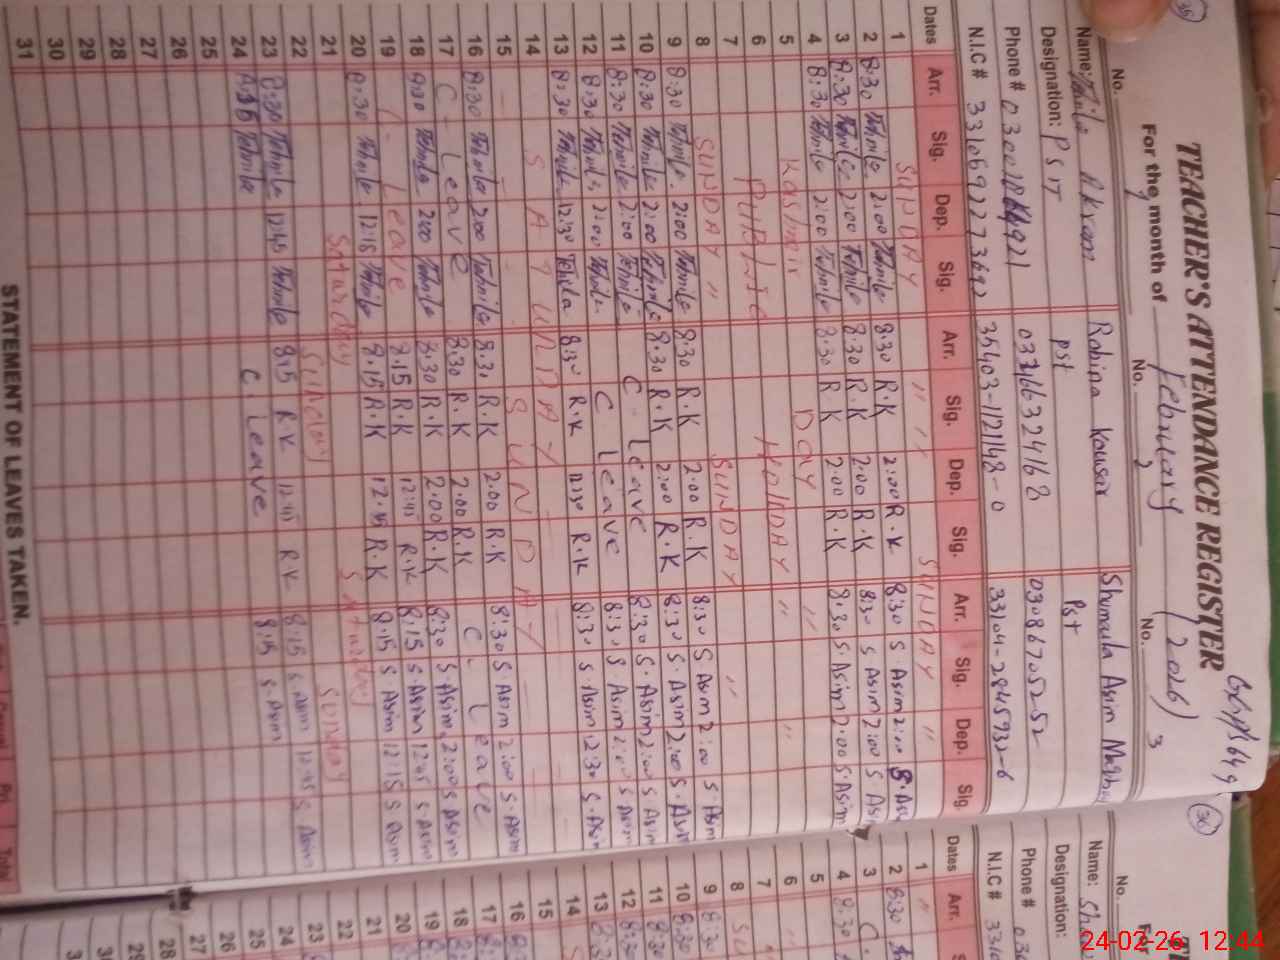 35
GHPS 649
TEACHER'S ATTENDANCE REGISTER
For the month of February (2026)
No. No. 2 No. 3
Name: Tehmila Akram Robina Kousar Shumaila Asim
Designation: PST pst Pst
Phone # 03316632416 03086705252
N.I.C # 35403-1121148-0 33104-2845932-6
Dates Arr. Sig. Dep. Sig. Arr. Sig. Dep. Sig. Arr. Sig. Dep. Sig.
1 SUNDAY " " SUNDAY "
2 8:30 Tehmila 2:00 Tehmila 8:30 R.K 2:00 R.K 8:30 S Asim 2:00
3 8:30 Tehmila 2:00 Tehmila 8:30 R.K 2:00 R.K 8:30 S Asim 2:00 S Asim
4 8:30 Tehmila 2:00 Tehmila 8:30 R.K 2:00 R.K 8:30 S Asim 2:00 S Asim
5 Kashmir DAY "
6 PUBLIC HOLIDAY " "
7
8 SUNDAY " SUNDAY "
9 8:30 Tehmila 2:00 Tehmila 8:30 R.K 2:00 R.K 8:30 S Asim 2:00 S Asim
10 8:30 Tehmila 2:00 Tehmila 8:30 R.K 2:00 R.K 8:30 S. Asim 2:00 S. Asim
11 8:30 Tehmila 2:00 Tehmila C. Leave 8:30 S. Asim 2:00 S Asim
12 8:30 Tehmila 2:00 Tehmila C Leave 8:30 S Asim 2:00 S Asim
13 8:30 Tehmila 12:30 8:30 R.K 12:30 R.K 8:30 S. Asim 12:30 S. Asim
14 SATURDAY
15 SUNDAY
16 8:30 Tehmila 2:00 Tehmila 8:30 R.K 2:00 R.K 8:30 S Asim 2:00 S. Asim
17 C-Leave 8:30 R.K 2:00 R.K C. Leave
18 8:30 Tehmila 2:00 Tehmila 8:30 R.K 2:00 R.K 8:30 S. Asim 2:00 S Asim
19 C- Leave 8:15 R.K 12:45 R.K 8:15 S Asim 12:45 S Asim
20 8:30 Tehmila 12:15 Tehmila 8:15 R.K R.K 8:15 S Asim 12:15 S Asim
21 Saturday Saturday
22 Sunday Sunday
23 8:30 Tehmila 12:45 Tehmila 8:15 R.K 12:45 R.K 8:15 S Asim 12:45 S Asim
24 Tehmila C. Leave 8:15 S. Asim
25
26
27
28
29
30
31
STATEMENT OF LEAVES TAKEN.
Casual Pri. Total
36
No.
For
Name:
Designation:
Phone #
N.I.C #
Dates Arr.
1 "
2 8:30
3 C.
4 8:30
5
6 "
7
8 SU
9 8:30
10 8:30
11 8:30
12 8:30
13
14
15
16
17
18
19
20
21
22
23
24
25
26
27
28
29
30
24-02-26 12:44